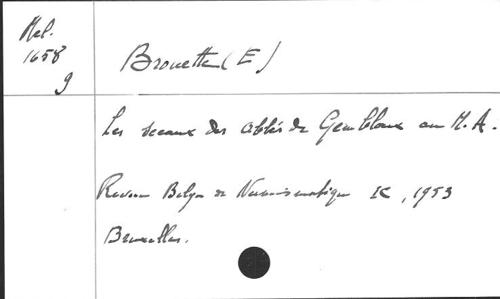 Rel.
1658
9
Brouette (E)
Les sceaux des abbés de Gembloux au M.A.
Revue Belge de Numismatique IC, 1953
Bruxelles.